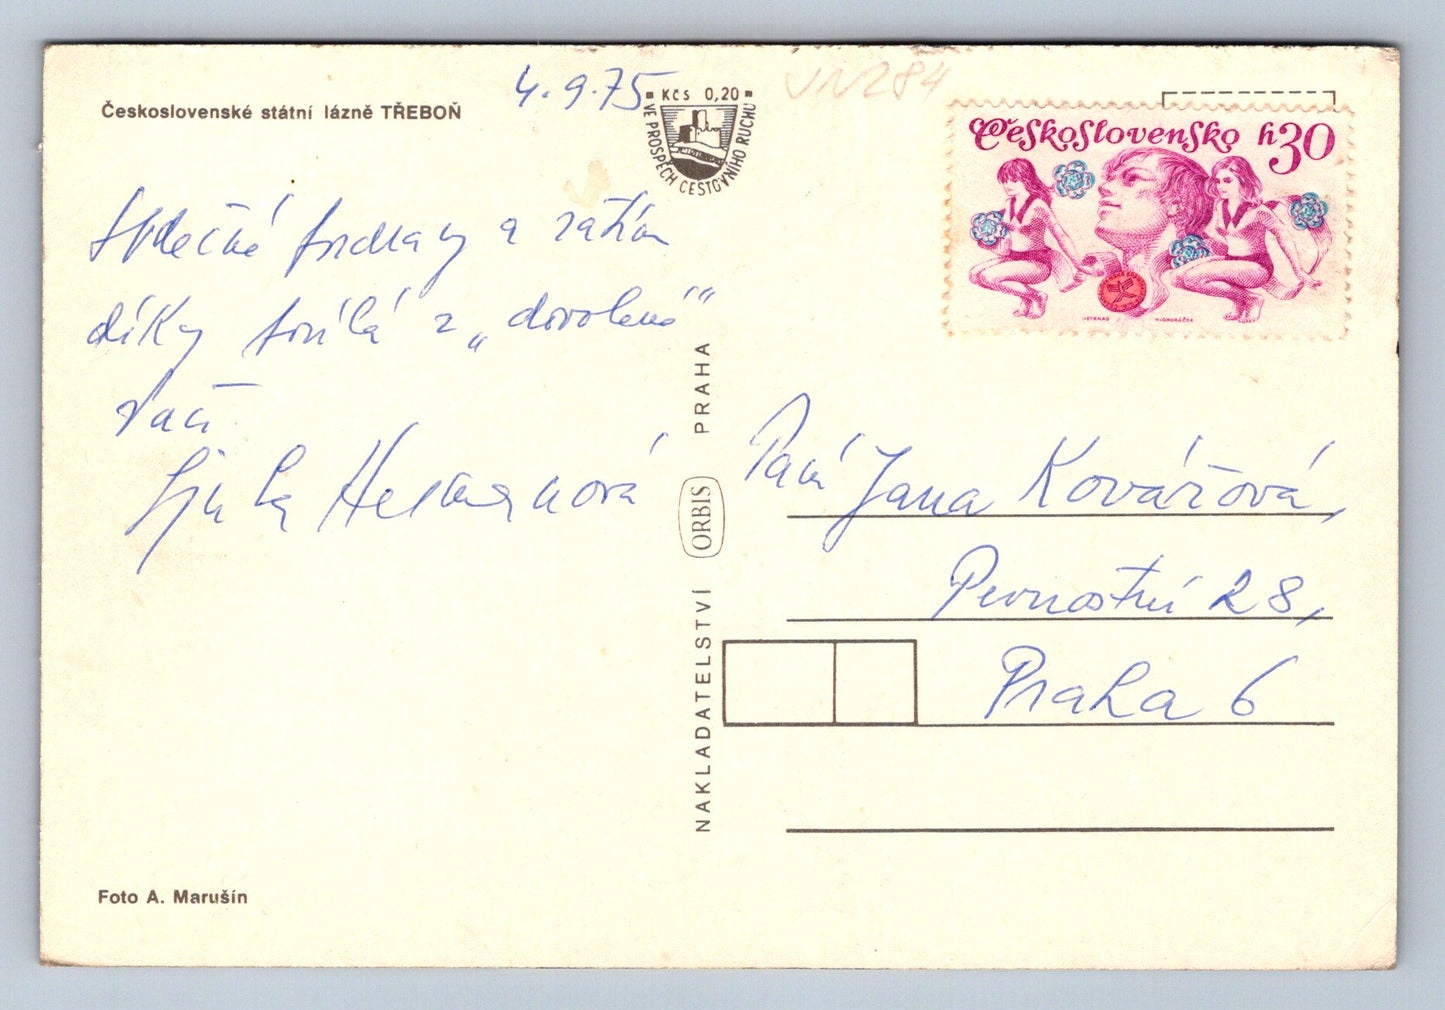 Československé státní lázně TŘEBOŇ
4.9.75
Kčs 0,20
VE PROSPĚCH CESTOVNÍHO RUCHU
Československo h30
STRNAD
ONDRÁČEK
Srdečné pozdravy a zatím
díky posílá z „dovolené”
Vaší
Heřmanová
NAKLADATELSTVÍ ORBIS PRAHA
Paní Jana Kovářová,
Pevnostní 28,
Praha 6
Foto A. Marušín